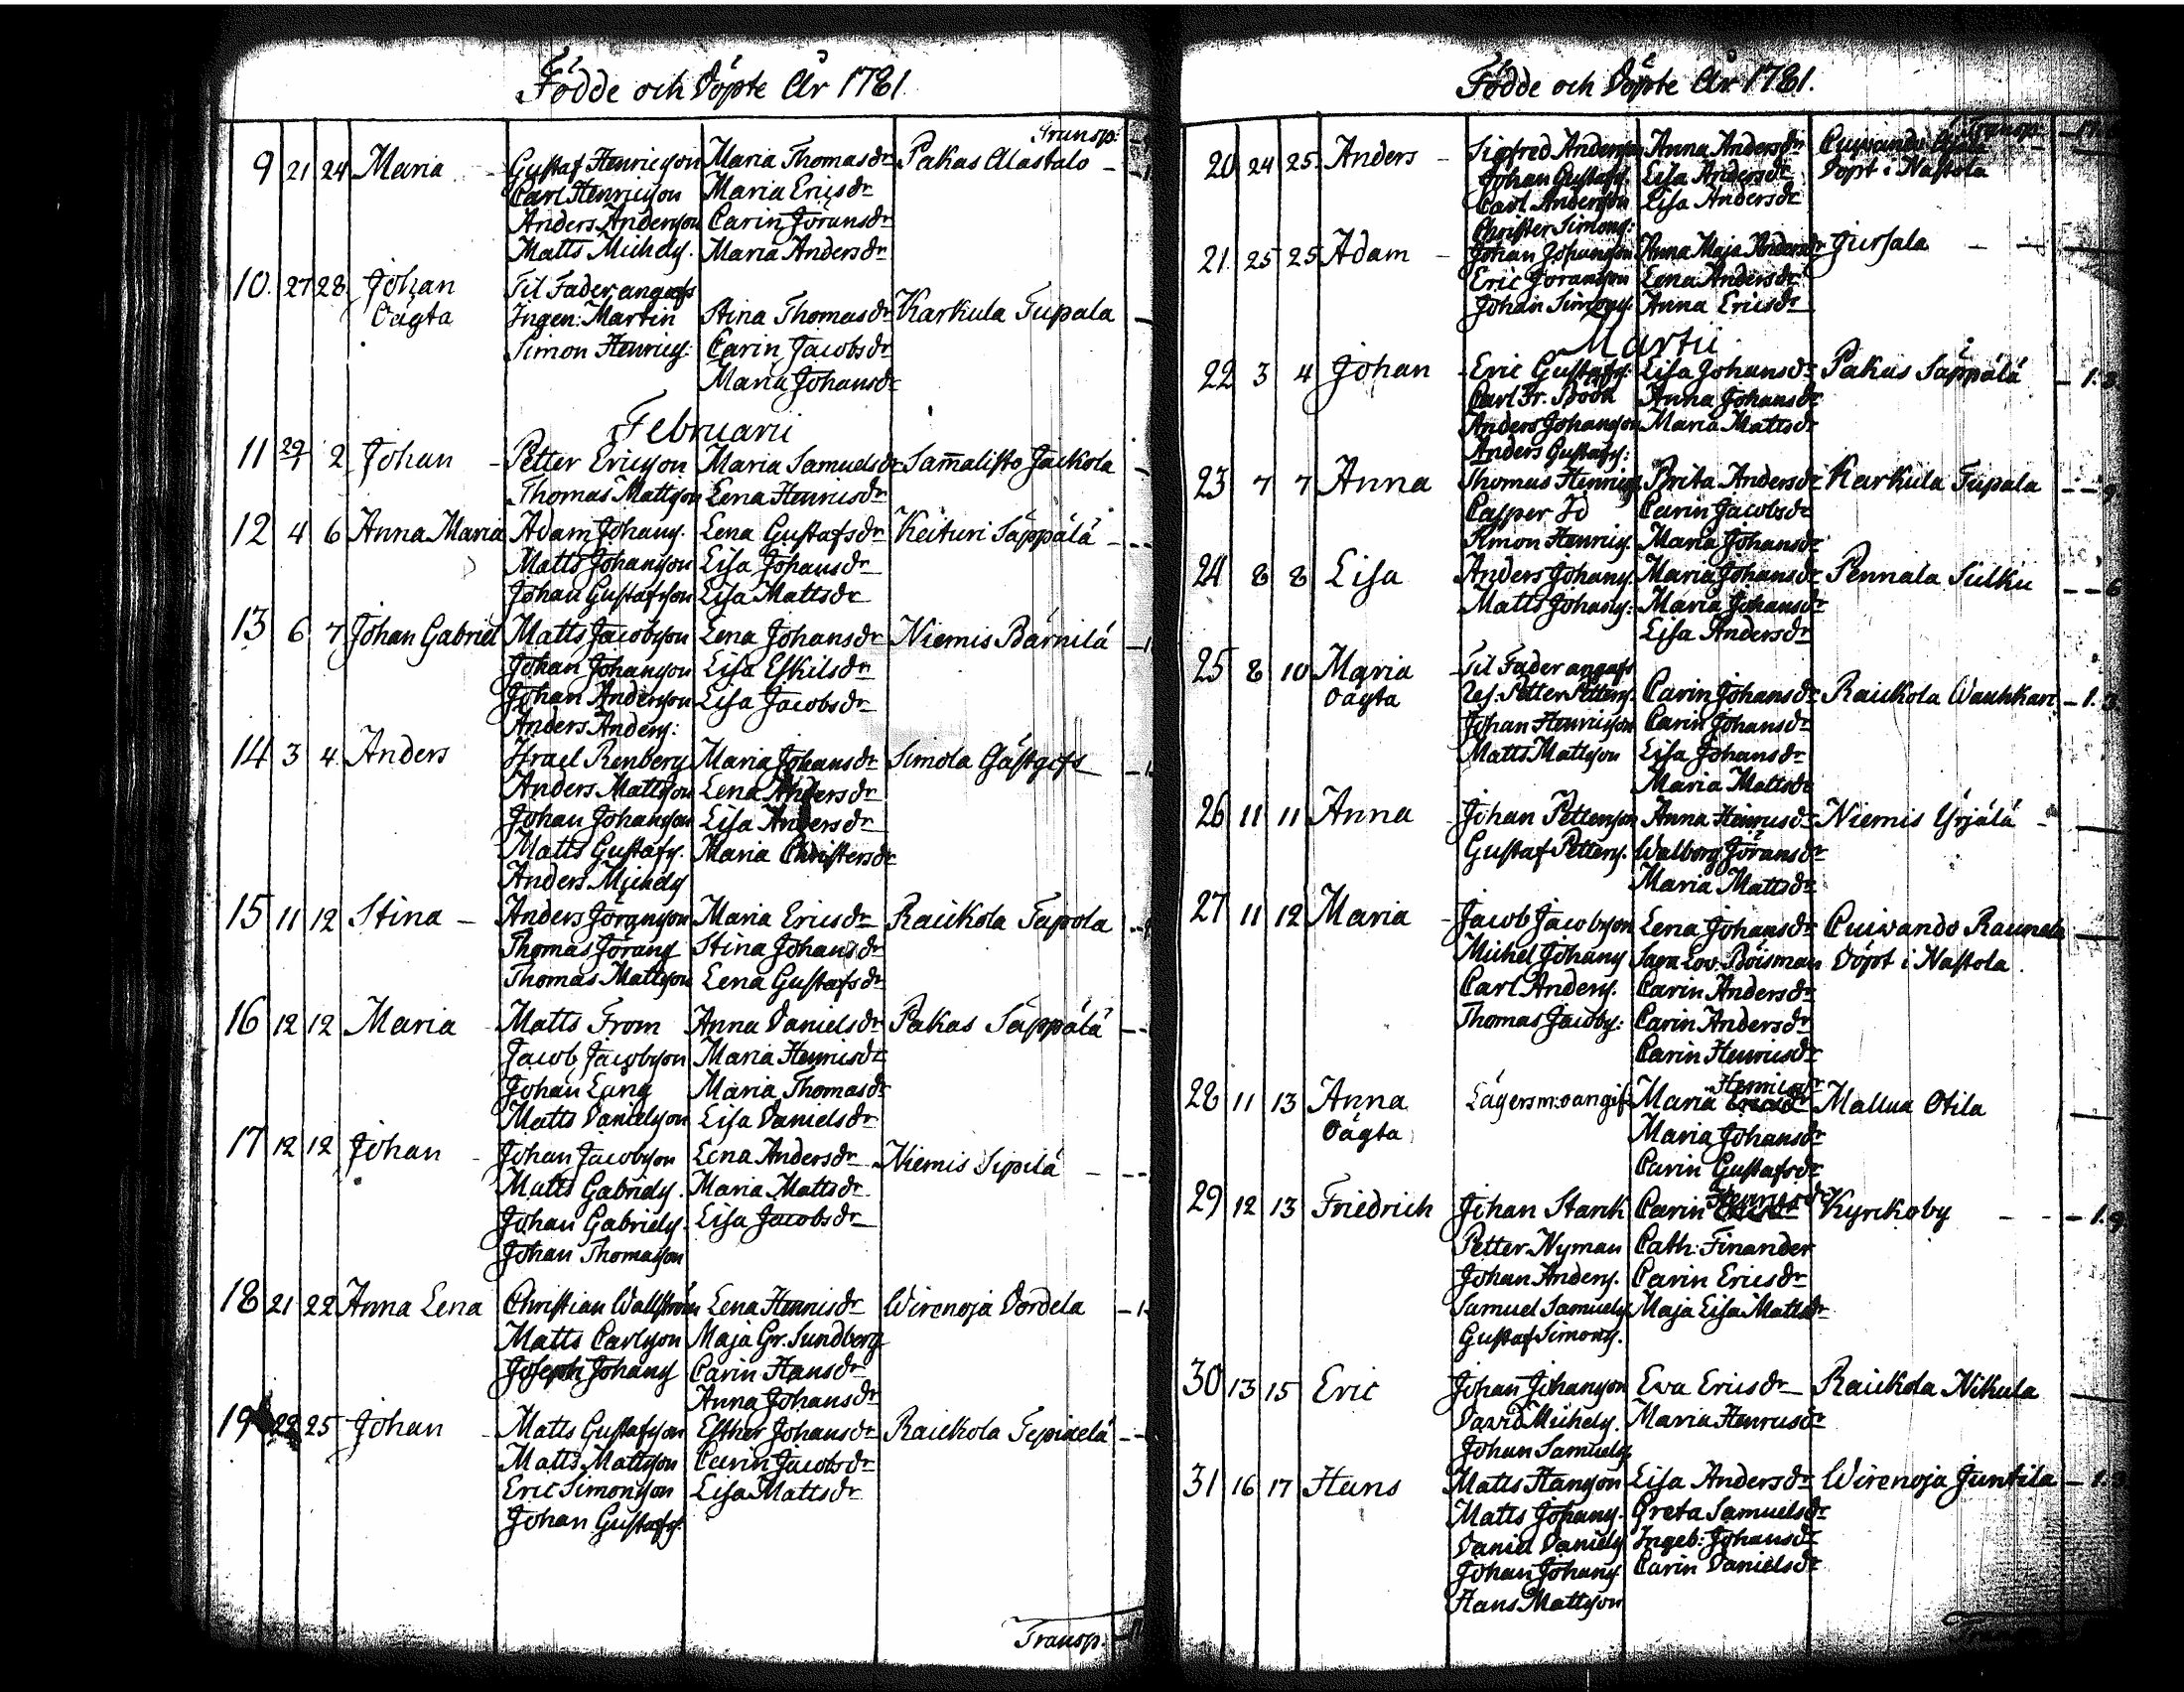 Födde och Döpte År 1781
Transp:
9 21 24 Maria - Gustaf Henricsson Maria Thomasdr Pakas Alastalo -
Carl Henricsson Maria Ericsdr
Anders Andersson Carin Jöransdr
Matts Michels. Maria Andersdr
10. 27 28 Johan Til Fader angafs
Oägta Ingen: Martin Stina Thomasdr Karkula Tupala
Simon Henrics: Carin Jacobsdr
Maria Johansdr
Februarii
11 29/1 2 Johan - Petter Ericsson Maria Samuelsdr Sam̄alisto Jackola
Thomas Mattsson Lena Henricsdr
12 4 6 Anna Maria Adam Johans. Lena Gustafsdr Keituri Säppälä -
Matts Johansson Lisa Johansdr
Johan Gustafsson Lisa Mattsdr
13 6 7 Johan Gabriel Matts Jacobsson Lena Johansdr Niemis Pärnilä
Johan Johansson Lisa Eskilsdr
Johan Andersson Lisa Jacobsdr
Anders Anders:
14 3 4 Anders Israel Renberg Maria Johansdr Simola Gästgifs
Anders Mattsson Lena Andersdr
Johan Johansson Lisa Andersdr
Matts Gustafs. Maria Christersdr
Anders Michels
15 11 12 Stina - Anders Jöransson Maria Ericsdr Raickola Tapola
Thomas Jörans Stina Johansdr
Thomas Mattsson Lena Gustafsdr
16 12 12 Maria Matts From Anna Danielsdr Pakas Säppälä
Jacob Jacobsson Maria Henricsdr
Johan Lang Maria Thomasdr
Matts Danielsson Lisa Danielsdr
17 12 12 Johan - Johan Jacobsson Lena Andersdr Niemis Sipilä -
Matts Gabriels. Maria Mattsdr
Johan Gabriels. Lisa Jacobsdr
Johan Thomasson
18 21 22 Anna Lena Christian Wallström Lena Henricsdr Wirenoja Dordela
Matts Carlsson Maja Gr. Sundberg
Joseph Johans Carin Hansdr
Anna Johansdr
19 22 25 Johan - Matts Gustafsson Esther Johansdr Raickola
Matts Mattsson Carin Jacobsdr
Eric Simonsson Lisa Mattsdr
Johan Gustafs.
Transp.
Födde och Döpte År 1781.
Transp:
20 24 25 Anders - Sigfred Andersson Anna Andersdr
Johan Gustafs. Lisa Andersdr Döpt i Nastola
Carl Andersson Lisa Andersdr
Christer Simons:
21 25 25 Adam - Johan Johansson Anna Maja Andersdr Jursala -
Eric Jöransson Lena Andersdr
Johan Simons. Anna Ericsdr
Martii
22 3 4 Johan - Eric Gustafs. Lisa Johansdr Pakas Säppälä
Carl Fr. Anna Johansdr
Anders Johansson Maria Mattsdr
Anders Gustafs:
23 7 7 Anna Thomas Henrics. Brita Andersdr Karkula Tupala
Casper Carin Jacobsdr
Simon Henrics. Maria Johansdr
24 8 8 Lisa Anders Johans. Maria Johansdr Pennala Sulku
Matts Johans: Maria Johansdr
Lisa Andersdr
25 8 10 Maria Til Fader angafs
Oägta Petter Petters. Carin Johansdr Raickola Wauhkari
Johan Henricsson Carin Johansdr
Matts Mattsson Lisa Johansdr
Maria Mattsdr
26 11 11 Anna - Johan Pettersson Anna Henricsdr Niemis Yrjälä -
Gustaf Petters. Walborg Jöransdr
Maria Mattsdr
27 11 12 Maria - Jacob Jacobsson Lena Johansdr Cuivando
Michel Johans Sara Lov. Böisman Döpt i Nastola.
Carl Anders. Carin Andersdr
Thomas Jacobs: Carin Andersdr
Carin Henricsdr
Henricsdr
28 11 13 Anna Lägersm: oangif. Maria Mallua Otila
Oägta Maria Johansdr
Carin Gustafsdr
Henricsdr
29 12 13 Friedrich Johan Stark Carin Kyrckoby
Petter Nyman Cath: Finander
Johan Anders. Carin Ericsdr
Samuel Samuels. Maja Lisa Mattsdr
Gustaf Simons.
30 13 15 Eric Johan Johansson Eva Ericsdr Raickola Nikula
David Michels. Maria Henricsdr
Johan Samuels.
31 16 17 Hans Matts Hansson Lisa Andersdr Wirenoja Juntila
Matts Johans. Greta Samuelsdr
Daniel Daniels Ingeb: Johansdr
Johan Johans. Carin Danielsdr
Hans Mattsson